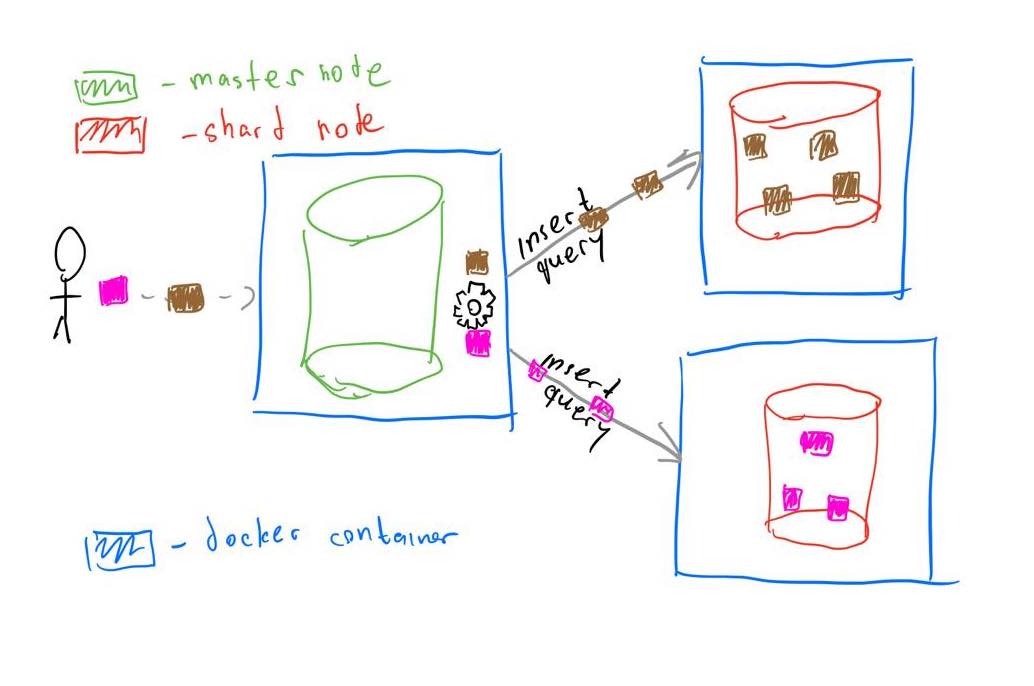 - master node
- shard node
insert
query
insert
query
- docker container